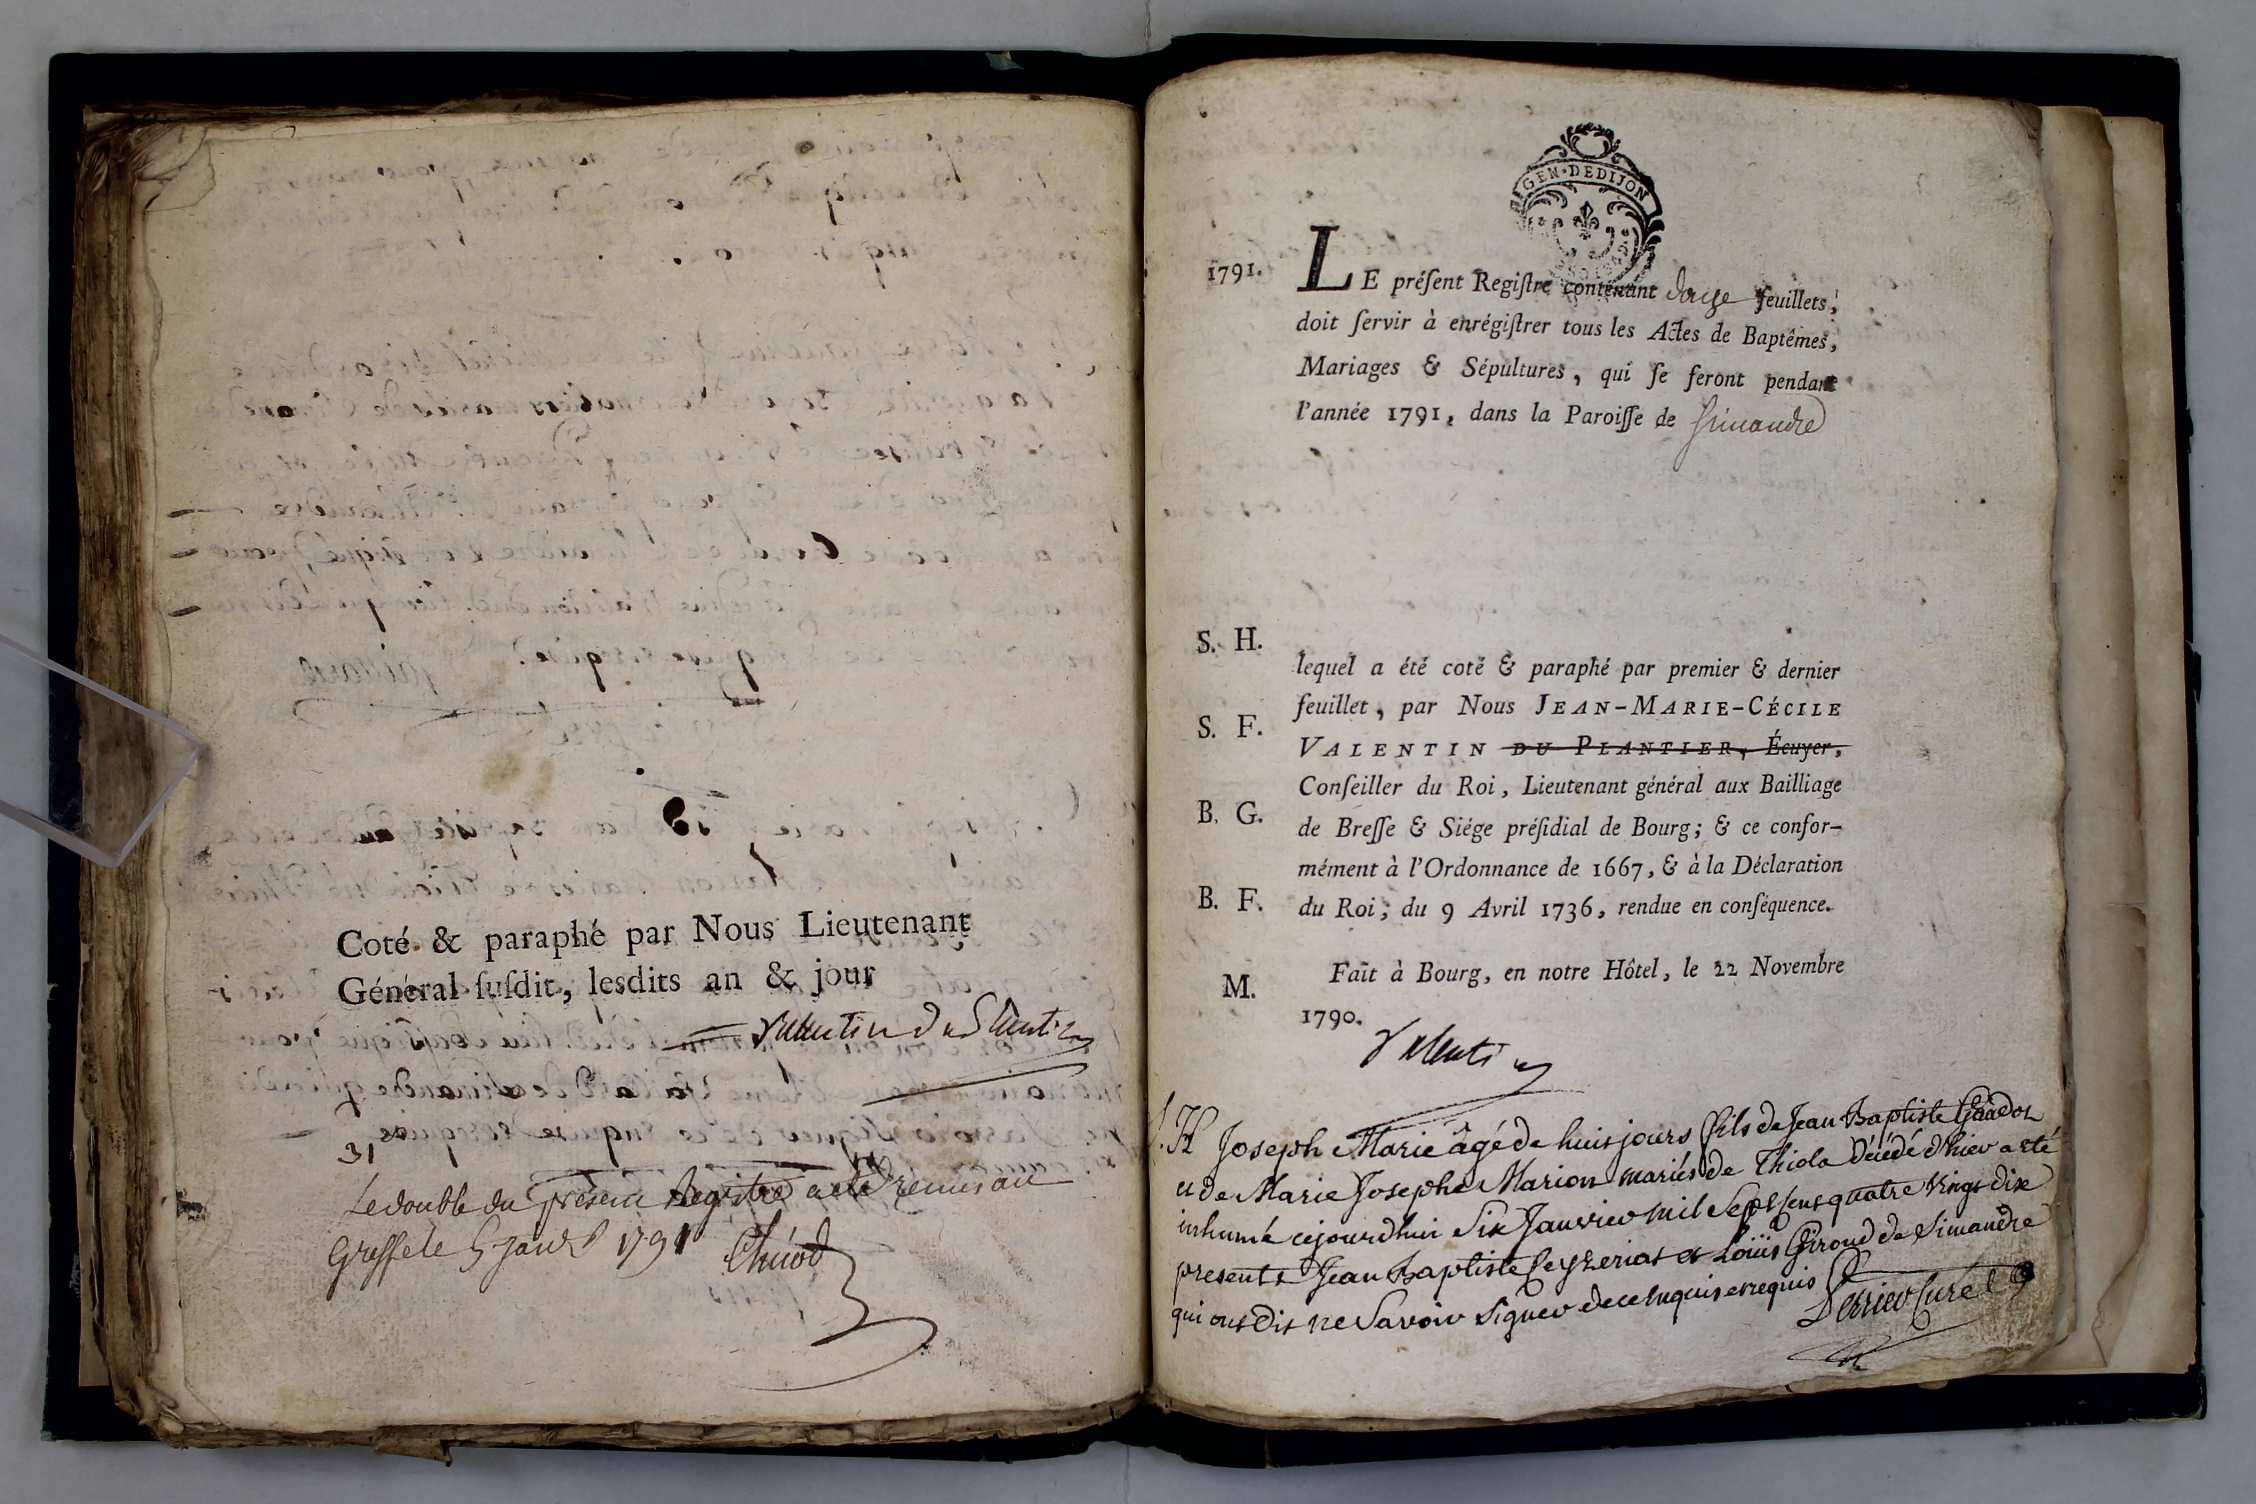 Coté & paraphé par Nous Lieutenant
Général susdit, lesdits an & jour
Valentin du Plantier
31
Le double du présent Registre a eté remis au
Greffe le 5 janvr 1791 Chicod
GEN·DEDIJON
1791.
LE préſent Regiſtre contenant douze feuillets,
doit ſervir à enrégiſtrer tous les Actes de Baptêmes,
Mariages & Sépultures, qui ſe feront pendant
l'année 1791, dans la Paroiſſe de Simandre
S. H.
lequel a été coté & paraphé par premier & dernier
feuillet, par Nous JEAN-MARIE-CÉCILE
S. F.
VALENTIN DU PLANTIER, Écuyer,
Conſeiller du Roi, Lieutenant général aux Bailliage
B. G.
de Breſſe & Siége préſidial de Bourg; & ce confor-
mément à l'Ordonnance de 1667, & à la Déclaration
B. F.
du Roi, du 9 Avril 1736, rendue en conſéquence.
M.
Fait à Bourg, en notre Hôtel, le 22 Novembre
1790.
Valentin
S. H Joseph Marie âgé de huit jours fils de Jean Baptiste
et de Marie Josephe Marion mariés de Thiola Décédé d'hier a eté
inhumé cejourdhui Six Janvier mil Sept Cent quatre Vingt dix
presents Jean Baptiste Ceyzeriat et Loüis Giroud de Simandre
qui ont Dit ne Savoir Signer de ce enquis et requis
Perrier Curé